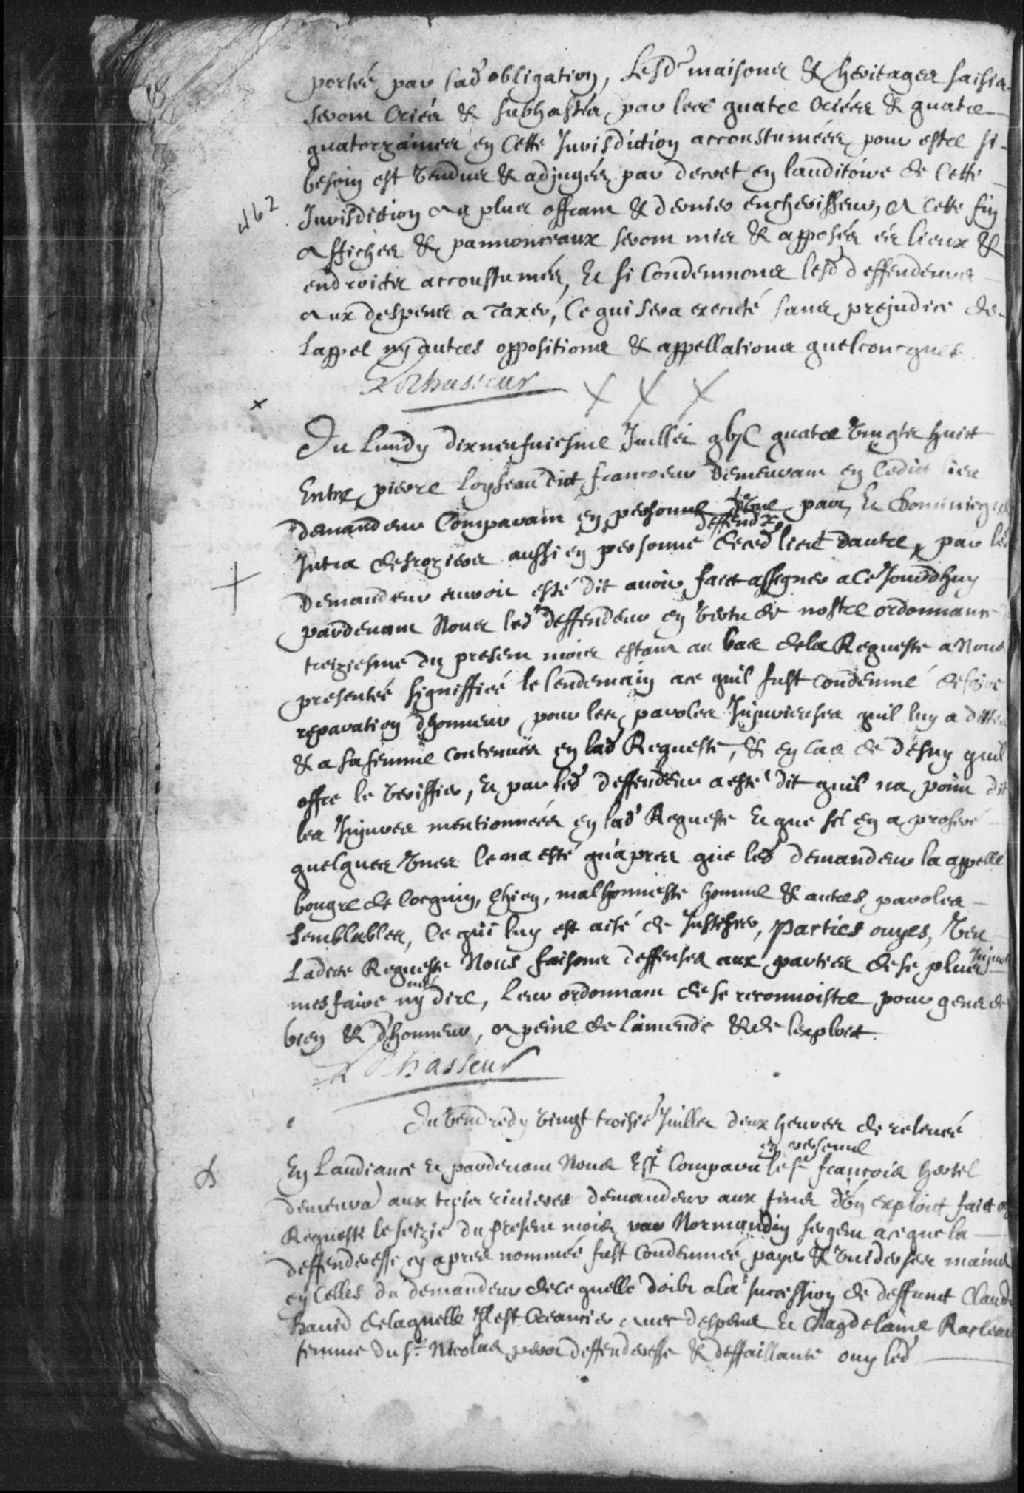 portée par lad obligation, Lesd maisons & heritages saisis
seront criés & subhastés par les quatre criées & quatre
quatorzaines en cette Jurisdiction accoustumées pour estre si
besoin est vendus & adjugés par decret en lauditoire de cette
Jurisdiction au plus offrant & dernier encherisseur, A cette fin
462
affiches & pannonceaux seront mis & apposés es lieux &
endroits accoustumés, Et si condemnons lesd deffendeurs
aux despens a taxer, Ce qui sera executé sans prejudice de
Lappel ny autres oppositions & appellations quelconques
Lechasseur
Du Lundy dixneufviesme Juillet gbjC quatre vingts huict
Entre pierre Loyseau dit francoeur demeurant en cedit lieu
demandeur Comparant en personne dune part, Et Dominique
deffendr
Jutra desrosiers aussi en personne de ced lieu dautre, par led
Demandeur auroit esté dit avoir fait assigner a ce Jourdhuy
pardevant Nous led deffendeur en vertu de nostre ordonnance
treiziesme du present mois estant au bas de la Requeste a Nous
presentée signiffiée le lendemain a ce quil fust condemné de faire
reparation dhonneur pour les paroles Injurieuses quil luy a dittes
& a sa femme contenues en lad Requeste, & en cas de desny quil
offre le veriffier, Et par led deffendeur a esté dit quil na point dit
les Injures mentionnées en lad Requeste Et que sil en a proferé
quelques unes ce na esté quapres que led demandeur la appellé
bougre de Coquin, chien, malhonneste homme & autres paroles
semblables, Ce qui luy est aisé de Justifier, Parties ouyes, Veu
Ladite Requeste Nous faisons deffenses aux parties de se plus
Injures
mesfaire ny dire, Leur ordonnant de se reconnoistre pour gens de
bien & dhonneur, a peine de lamende & de lexploit
Lechasseur
Du Vendredy vingt troise Juillet deux heures de relevée
en personne
En Laudiance Et pardevant Nous Est Comparu le Sr françois hertel
demeurat aux trois rivieres demandeur aux fins dun exploit fait
Requeste le seizie du present mois par Normandin sergent a ce que la
deffenderesse cy apres nommée fust condemnée payer & vuider ses mains
en celles du demandeur de ce quelle doibt a la succession de deffunt Claude
david de laquelle Il est Creancier avec despens Et Magdelaine Racleau
femme du Sr. Nicolas perot deffenderesse & deffaillante ouy led